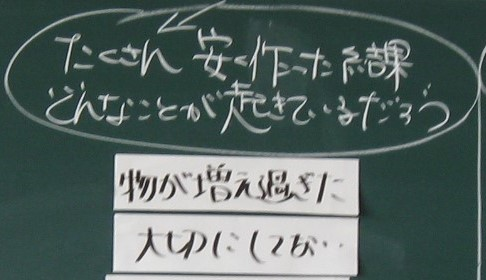 たくさん 安く作った結果
どんなことが起きているだろう
物が増え過ぎた
大切にしてない‥